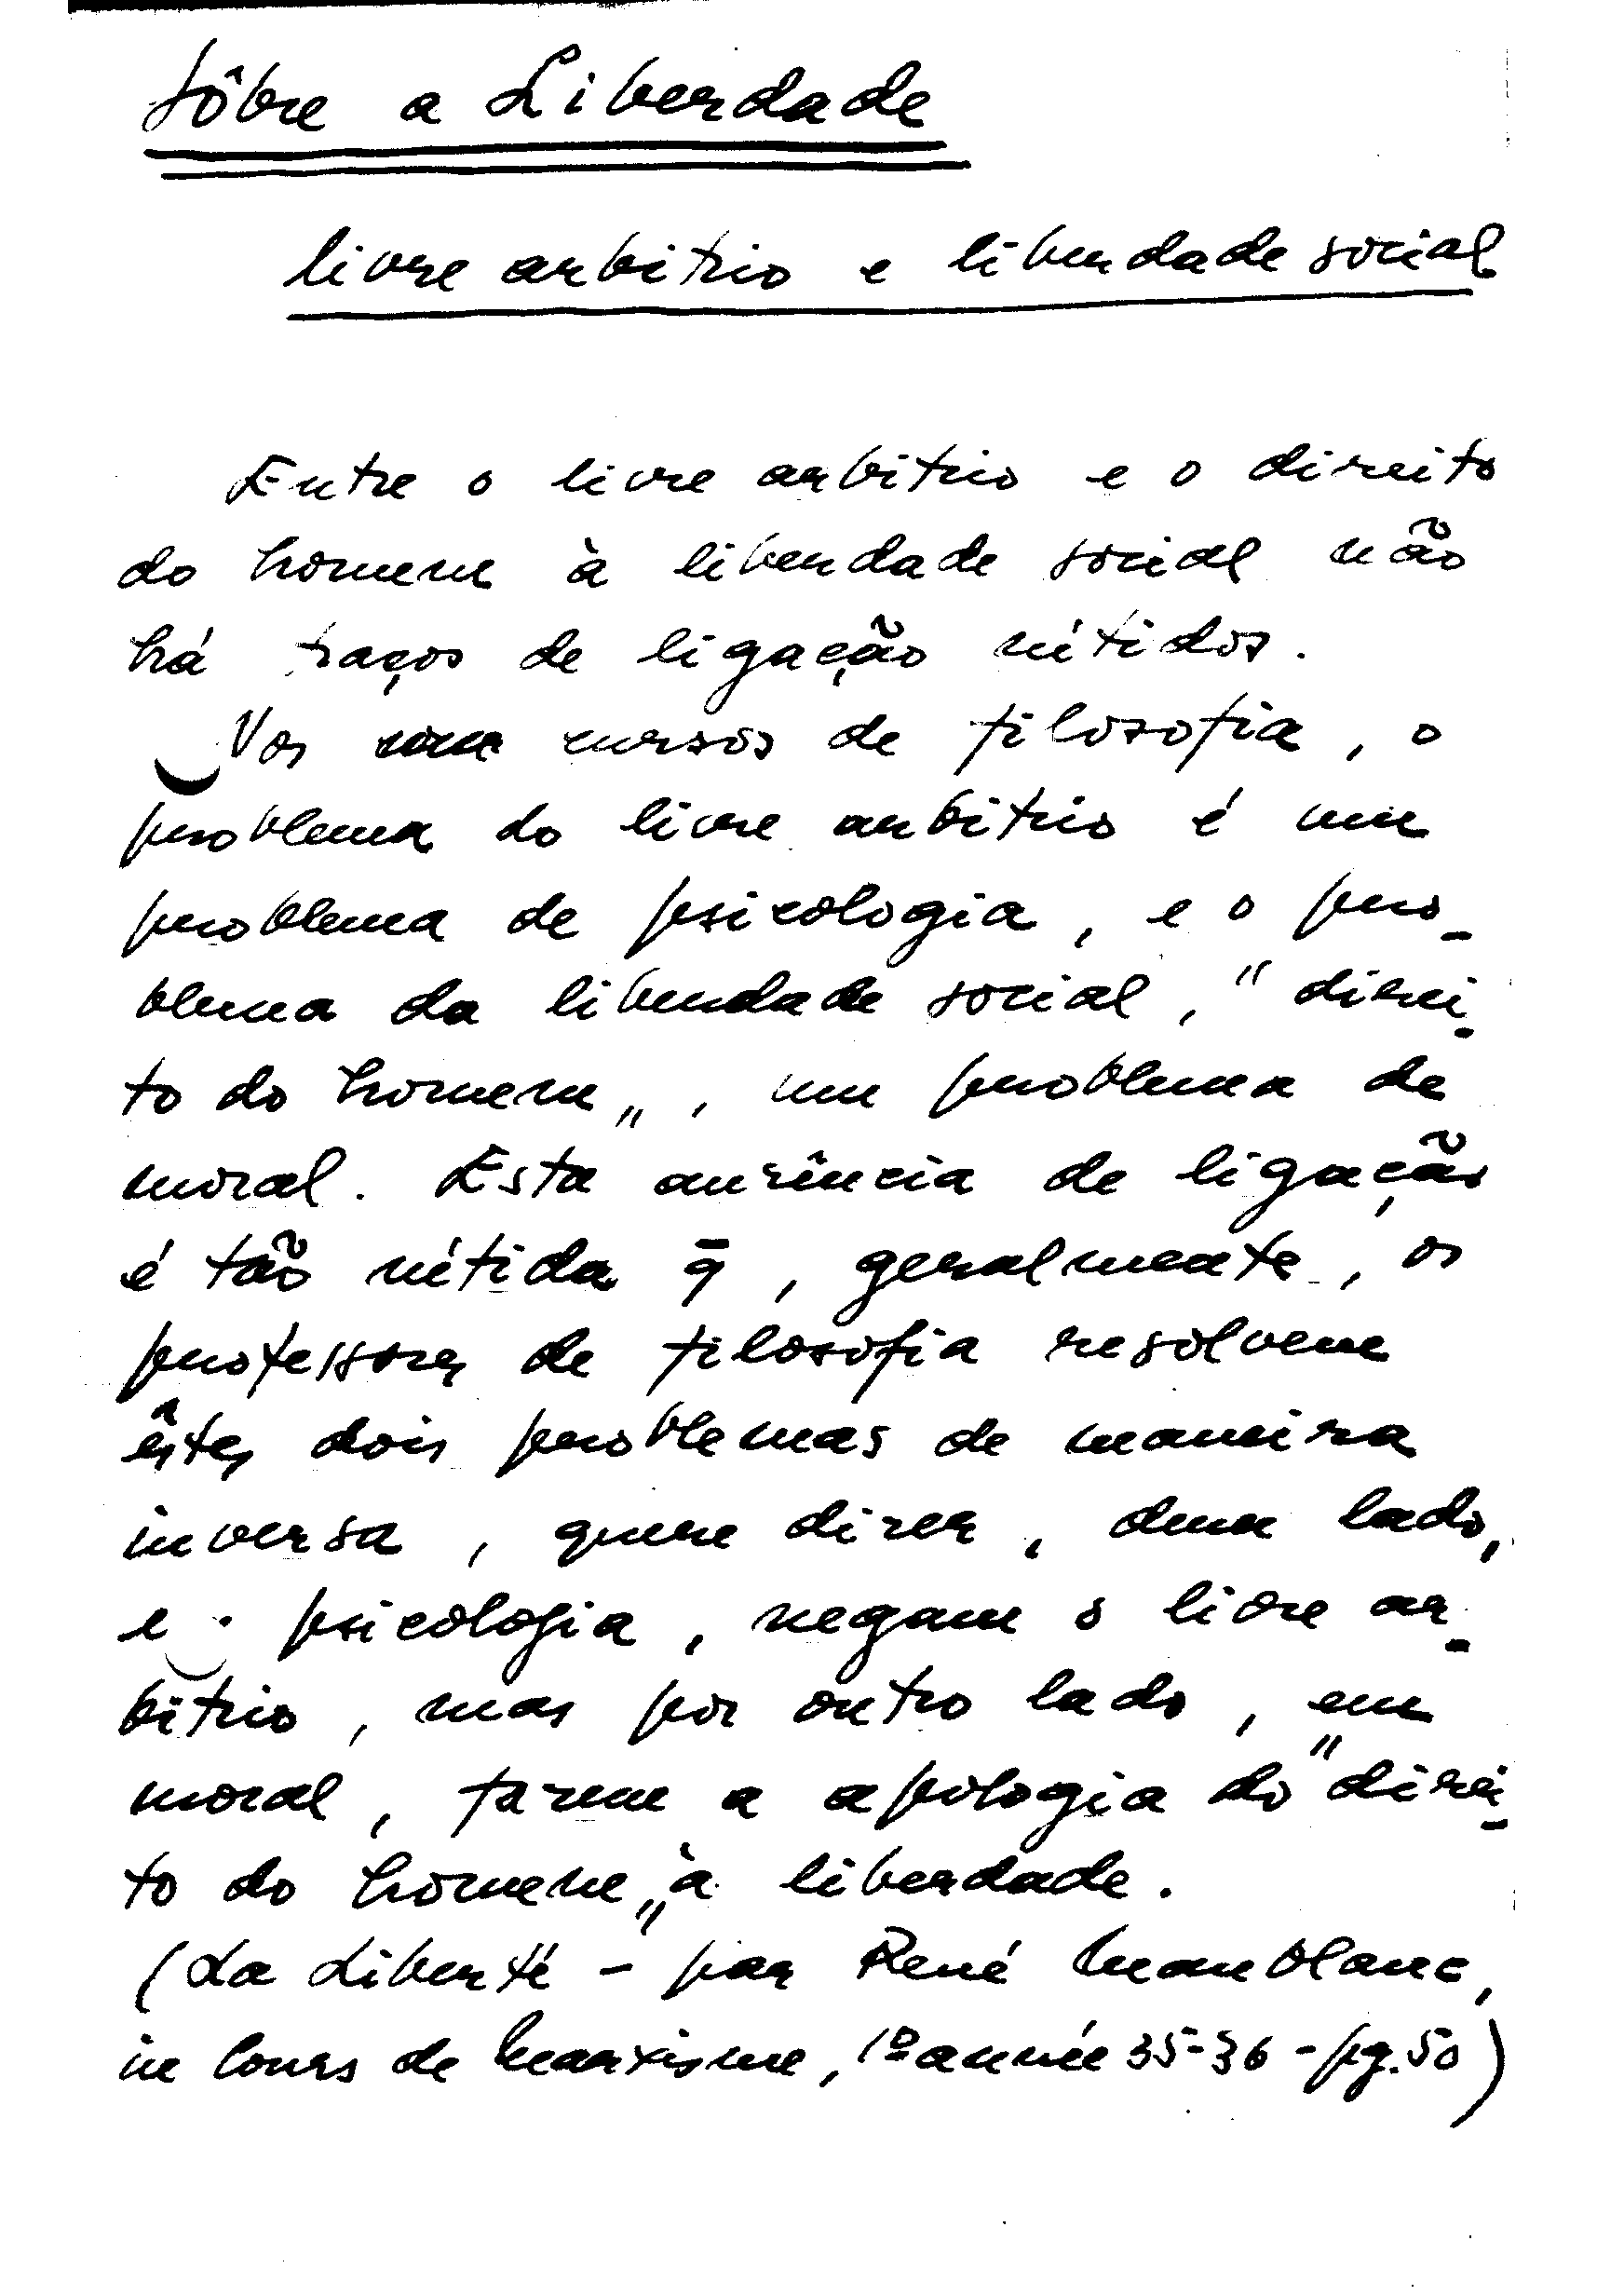 Sôbre a Liberdade
livre arbitrio e liberdade social
Entre o livre arbitrio e o direito
do homem à liberdade social não
há traços de ligação nítidos.
Nos cursos de filosofia, o
problema do livre arbitrio é um
problema de psicologia, e o pro-
blema da liberdade social, "direi-
to do homem", um problema de
moral. Esta ausência de ligação
é tão nítida q̄, geralmente, os
professores de filosofia resolvem
êstes dois problemas de maneira
inversa, quere dizer, dum lado,
e psicologia, negam o livre ar-
bitrio, mas por outro lado, em
moral, fazem a apologia do "direi-
to do homem" à liberdade.
(La Liberté - par René Maublanc,
in Cours de Marxisme, 1º année 35-36 - pg. 50)